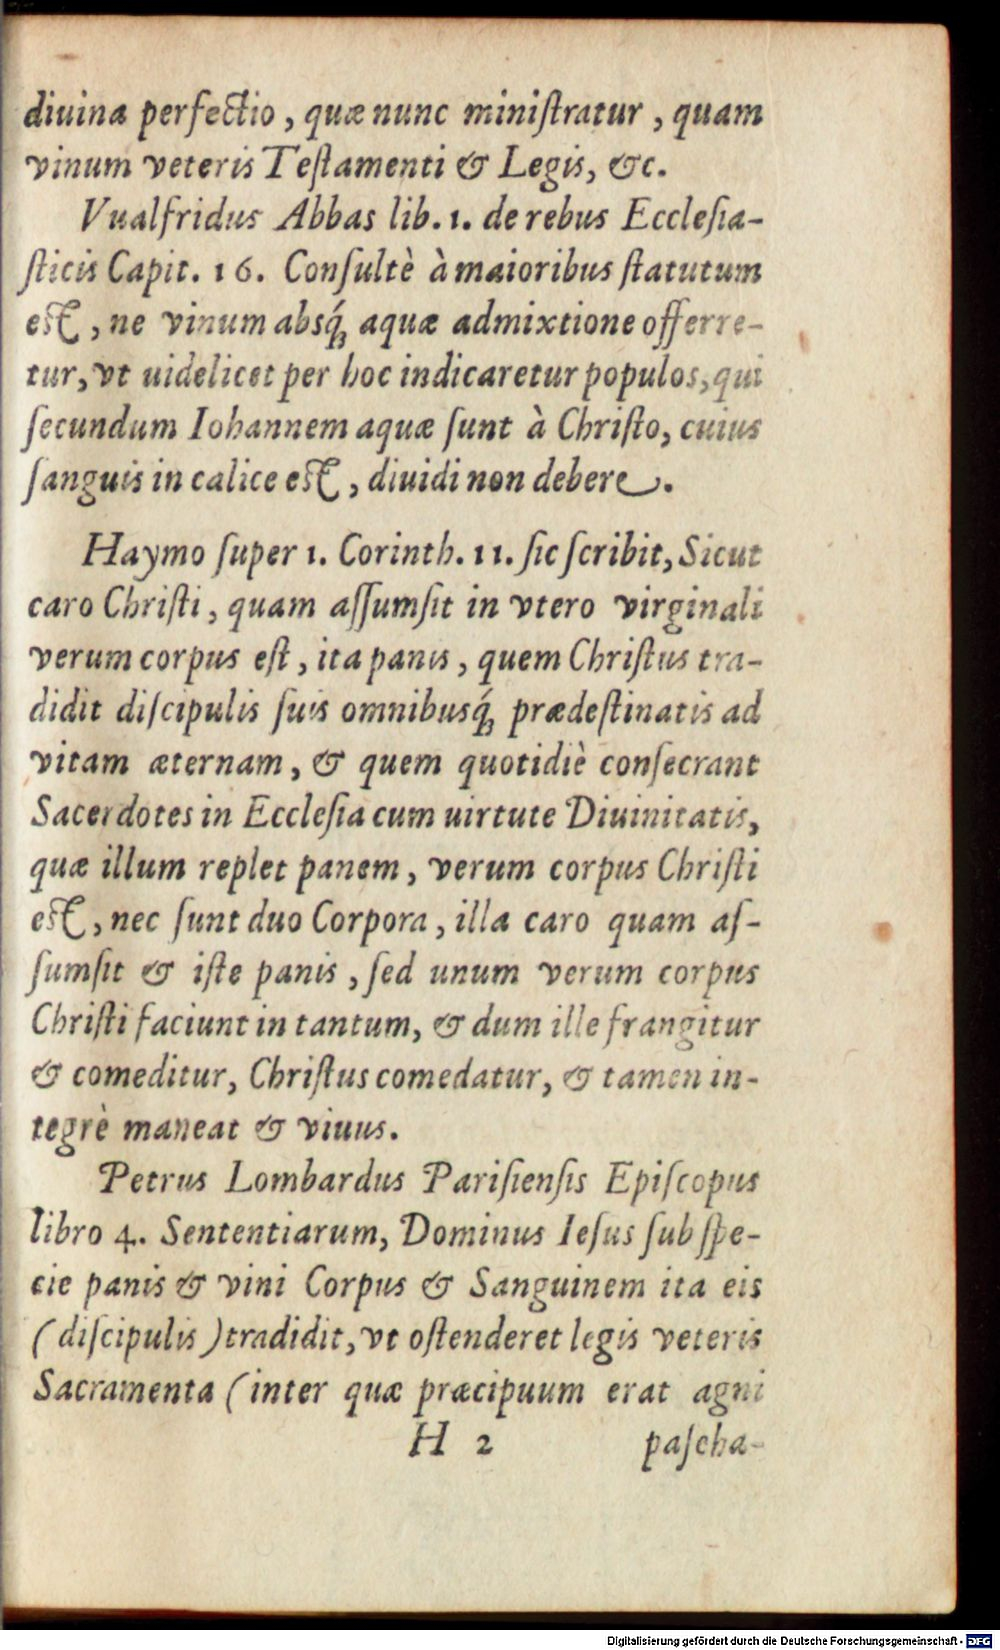 diuina perfectio, quæ nunc miniſtratur, quam
vinum veteris Teſtamenti & Legis, &c.
Vualfridus Abbas lib. 1. de rebus Eccleſia-
ſticis Capit. 16. Conſultè à maioribus ſtatutum
eſt, ne vinum absq́; aquæ admixtione offerre-
tur, vt uidelicet per hoc indicaretur populos, qui
ſecundum Iohannem aquæ ſunt à Chriſto, cuius
ſanguis in calice eſt, diuidi non debere.
Haymo ſuper 1. Corinth. 11. ſic ſcribit, Sicut
caro Chriſti, quam aſſumſit in vtero virginali
verum corpus eſt, ita panis, quem Chriſtus tra-
didit diſcipulis ſuis omnibusq́; prædeſtinatis ad
vitam æternam, & quem quotidiè conſecrant
Sacerdotes in Eccleſia cum uirtute Diuinitatis,
quæ illum replet panem, verum corpus Chriſti
eſt, nec ſunt duo Corpora, illa caro quam aſ-
ſumſit & iſte panis, ſed unum verum corpus
Chriſti faciunt in tantum, & dum ille frangitur
& comeditur, Chriſtus comedatur, & tamen in-
tegrè maneat & viuus.
Petrus Lombardus Pariſienſis Epiſcopus
libro 4. Sententiarum, Dominus Ieſus ſub ſpe-
cie panis & vini Corpus & Sanguinem ita eis
(diſcipulis) tradidit, vt oſtenderet legis veteris
Sacramenta (inter quæ præcipuum erat agni
H 2 paſcha-
Digitalisierung gefördert durch die Deutsche Forschungsgemeinschaft - DFG